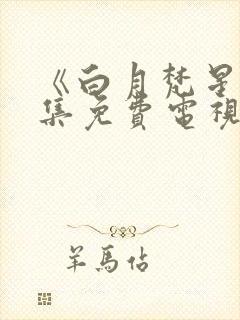 《白月梵星
集免費電視
羊馬佔